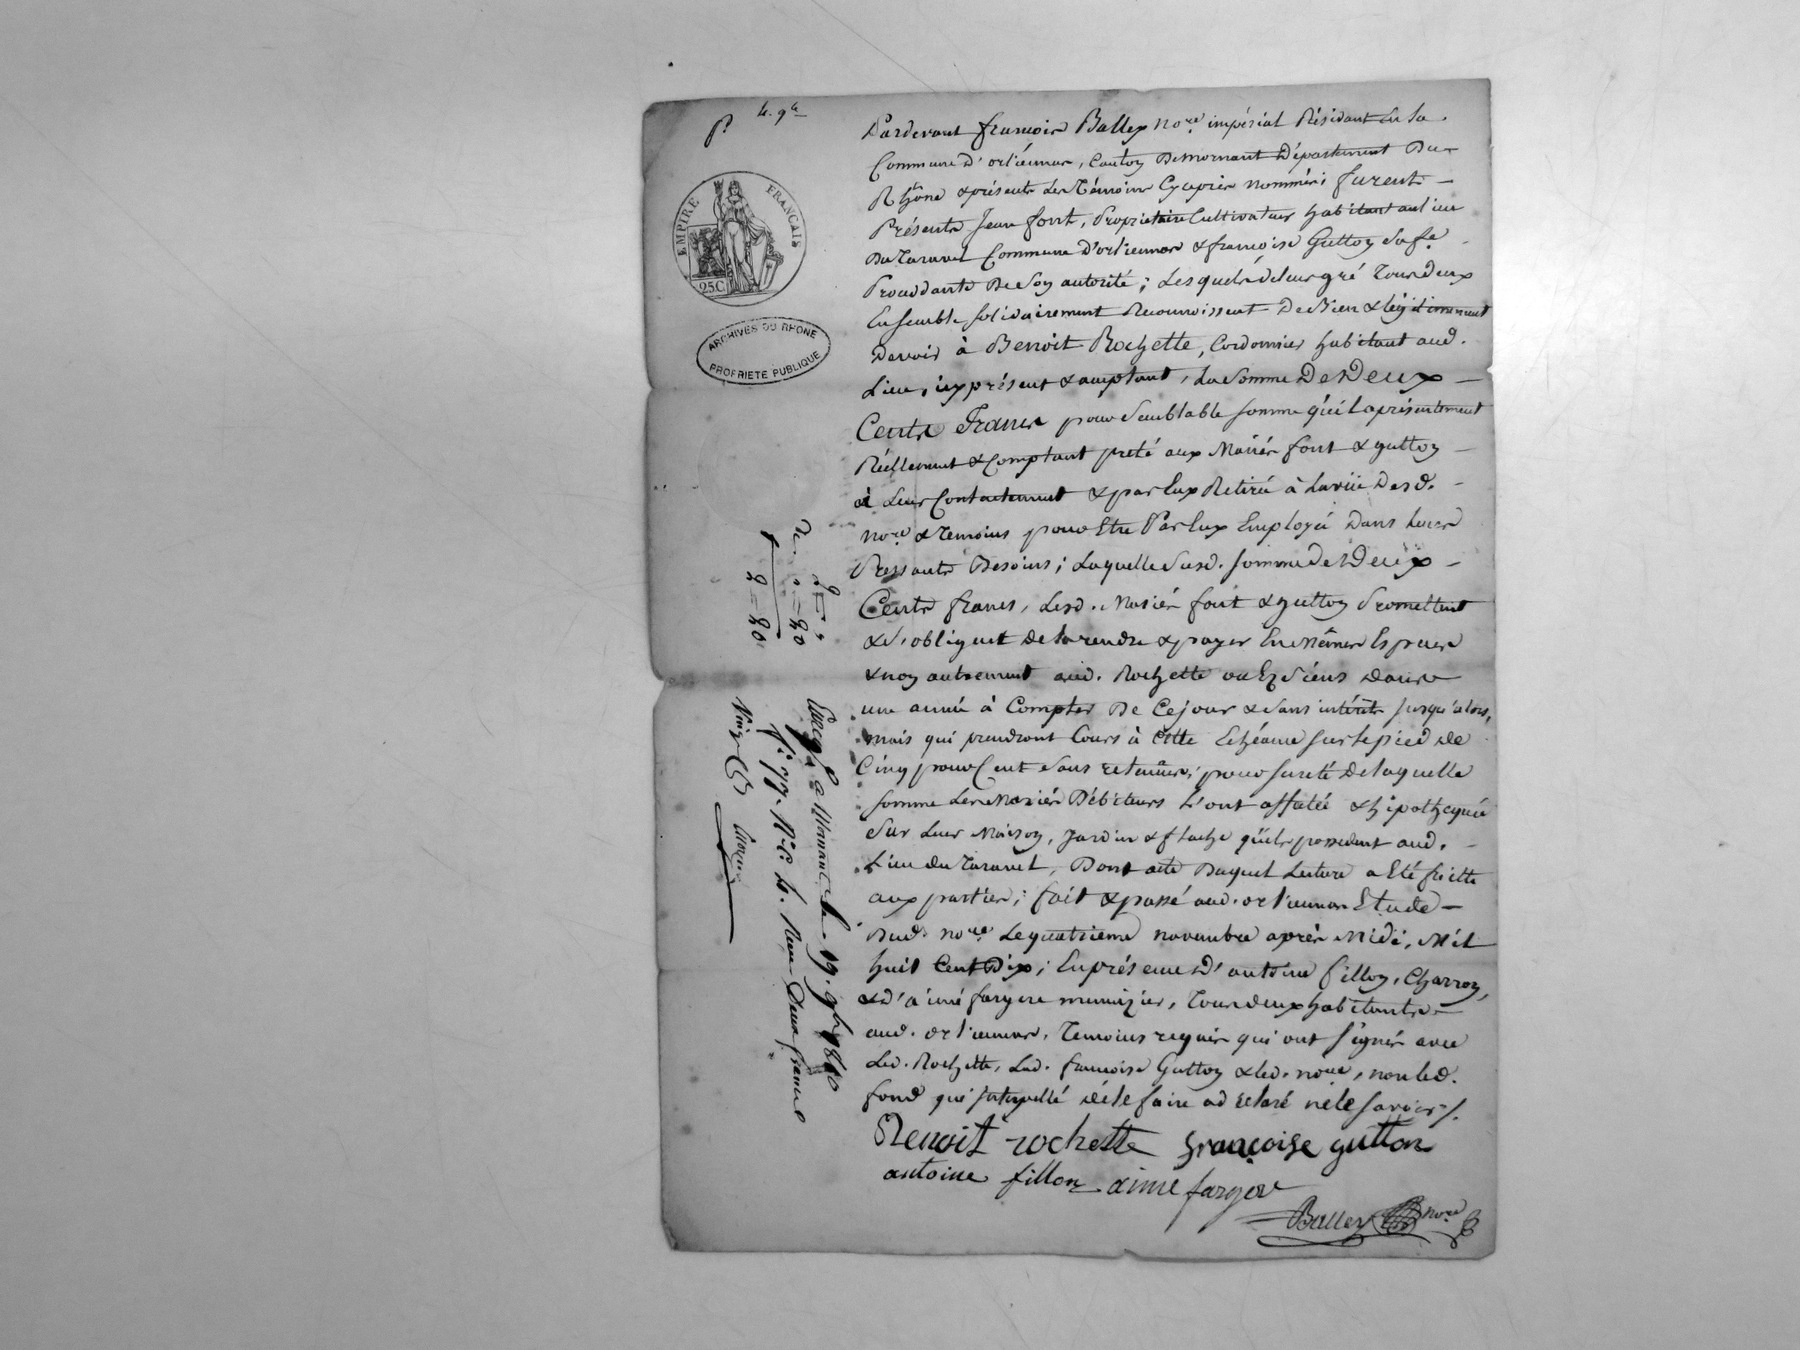 P. 4. 9.bre
EMPIRE FRANÇAIS
25C
ARCHIVES DU RHONE
PROPRIETE PUBLIQUE
Pardevant françois Balley nore. impérial Résidant En la
Commune d'orliénnas, Canton De mornant Département Du
Rhône & présents Les Témoins Cy après nommés; furent
Présents Jean font, Propriétaire Cultivateur habitant au lieu
Du Taravel Commune d'orliennas & françoise Gutton Sa fe.
Procédante De Son autorité; Lesquels de leur gré Tous deux
Ensemble solidairement Reconnoissent De Bien & légitimement
Devoir à Benoit Rochette, Cordonnier habitant aud.
Lieu, icy présent & acceptant, La Somme De Deux
Cents Francs pour Semblable somme qu'il a présentement
Réellement & Comptant preté aux Mariés font & gutton
à Leur Contentement & par Eux Retirée à La vüe Desd.
nore. & Temoins pour Etre Par Eux Employée Dans Leurs
Pressants Besoins; Laquelle Susd. somme De Deux
Cents francs, Lesd. Mariés font & gutton Promettent
& S'obligent De la rendre & payer En Mêmes Espèces
& non autrement aud. Rochette ou Ez Siens Dans
une année à Compter De Ce jour & Sans intérêts jusqu'alors,
mais qui prendront Cours à Cette Echéance sur le pied de
Cinq pour Cent Sans retenüe; pour sureté De laquelle
somme Les Mariés Débiteurs L'ont affectée & hipothequée
Sur Leur Maison, Jardin & flache qu'ils possedent aud.
Lieu du Taravel, Dont acte Duquel Lecture a Eté faitte
aux parties; fait & passé aud. orliennas Etude
Dud. nore. Le quatrieme novembre après Midi, Mil
huit Cent Dix; En présence D'antoine fillon, Charron,
& d'aimé fargere menuizier, Tous deux habitants
aud. orliennas, Temoins requis qui ont signés avec
Led. Rochette, Lad. françoise Gutton & led. nore, non led.
fond qui interpellé de le faire a déclaré ne le savoir./.
Benoit rochette françoise gutton
antoine fillon aimé fargere
Balley nore
2 = "
" = 20
2 = 20
Enreg. à Mornant le 19. 9bre 1810
fo. 77. Ro. C. 4. Reçu Deux francs
Vingt Cs